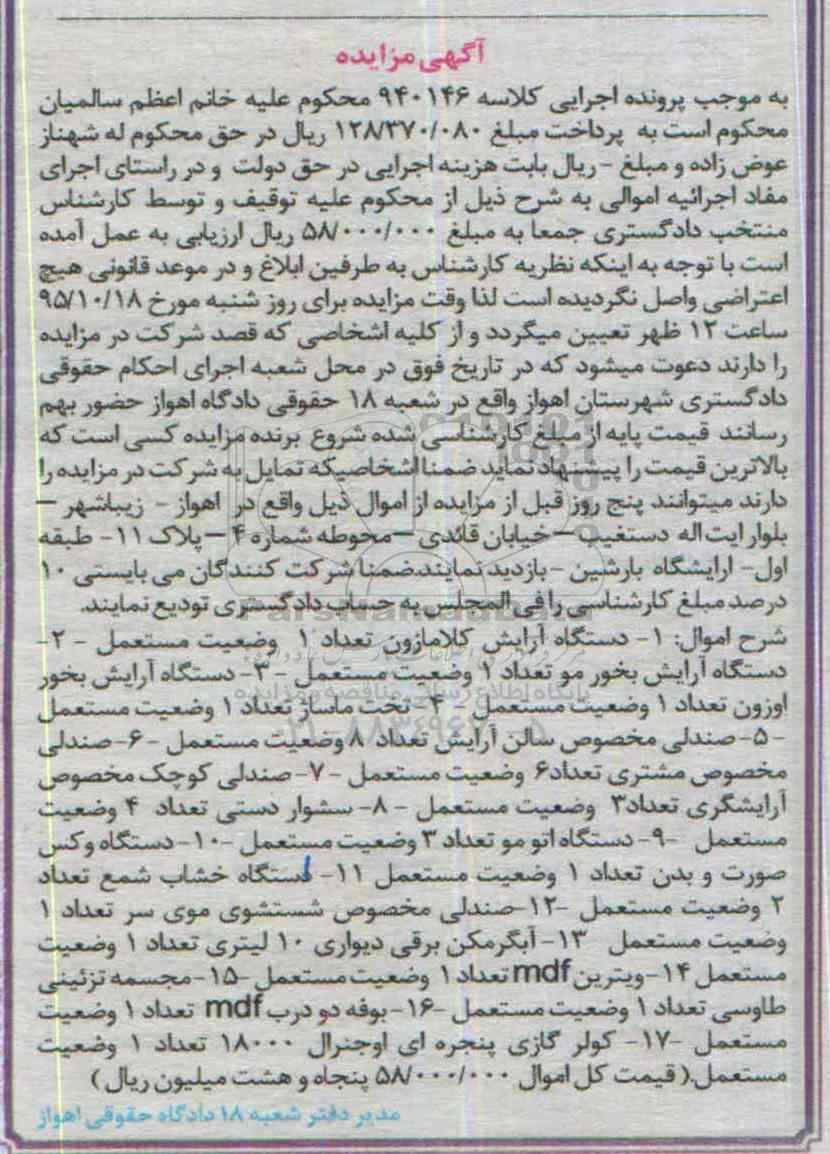 آگهی مزایده
به موجب پرونده اجرایی کلاسه ۹۴۰۱۴۶ محکوم علیه خانم اعظم سالمیان
محکوم است به پرداخت مبلغ ۱۲۸/۳۷۰/۰۸۰ ریال در حق محکوم له شهناز
عوض زاده و مبلغ - ریال بابت هزینه اجرایی در حق دولت و در راستای اجرای
مفاد اجرائیه اموالی به شرح ذیل از محکوم علیه توقیف و توسط کارشناس
منتخب دادگستری جمعا به مبلغ ۵۸/۰۰۰/۰۰۰ ریال ارزیابی به عمل آمده
است با توجه به اینکه نظریه کارشناس به طرفین ابلاغ و در موعد قانونی هیچ
اعتراضی واصل نگردیده است لذا وقت مزایده برای روز شنبه مورخ ۹۵/۱۰/۱۸
ساعت ۱۲ ظهر تعیین میگردد و از کلیه اشخاصی که قصد شرکت در مزایده
را دارند دعوت میشود که در تاریخ فوق در محل شعبه اجرای احکام حقوقی
دادگستری شهرستان اهواز واقع در شعبه ۱۸ حقوقی دادگاه اهواز حضور بهم
رسانند قیمت پایه از مبلغ کارشناسی شده شروع برنده مزایده کسی است که
بالاترین قیمت را پیشنهاد نماید ضمنا اشخاصیکه تمایل به شرکت در مزایده را
دارند میتوانند پنج روز قبل از مزایده از اموال ذیل واقع در اهواز - زیباشهر –
بلوار ایت اله دستغیب – خیابان قائدی – محوطه شماره ۴ – پلاک ۱۱- طبقه
اول- ارایشگاه بارشین - بازدید نمایند.ضمنا شرکت کنندگان می بایستی ۱۰
درصد مبلغ کارشناسی را فی المجلس به حساب دادگستری تودیع نمایند.
شرح اموال: ۱- دستگاه آرایش کلامازون تعداد ۱ وضعیت مستعمل - ۲-
دستگاه آرایش بخور مو تعداد ۱ وضعیت مستعمل - ۳- دستگاه آرایش بخور
اوزون تعداد ۱ وضعیت مستعمل - ۴- تخت ماساژ تعداد ۱ وضعیت مستعمل
- ۵- صندلی مخصوص سالن آرایش تعداد ۸ وضعیت مستعمل - ۶- صندلی
مخصوص مشتری تعداد۶ وضعیت مستعمل - ۷- صندلی کوچک مخصوص
آرایشگری تعداد۳ وضعیت مستعمل - ۸- سشوار دستی تعداد ۴ وضعیت
مستعمل -۹- دستگاه اتو مو تعداد ۳ وضعیت مستعمل -۱۰- دستگاه وکس
صورت و بدن تعداد ۱ وضعیت مستعمل ۱۱- دستگاه خشاب شمع تعداد
۲ وضعیت مستعمل -۱۲-صندلی مخصوص شستشوی موی سر تعداد ۱
وضعیت مستعمل ۱۳- آبگرمکن برقی دیواری ۱۰ لیتری تعداد ۱ وضعیت
مستعمل ۱۴-ویترین mdf تعداد ۱ وضعیت مستعمل -۱۵-مجسمه تزئینی
طاوسی تعداد ۱ وضعیت مستعمل -۱۶-بوفه دو درب mdf تعداد ۱ وضعیت
مستعمل -۱۷- کولر گازی پنجره ای اوجنرال ۱۸۰۰۰ تعداد ۱ وضعیت
مستعمل.( قیمت کل اموال ۵۸/۰۰۰/۰۰۰ پنجاه و هشت میلیون ریال )
مدیر دفتر شعبه ۱۸ دادگاه حقوقی اهواز
ParsNamadData
پایگاه اطلاع رسانی مناقصه و مزایده
۰۲۱-۸۸۳۴۹۶۷۰-۵